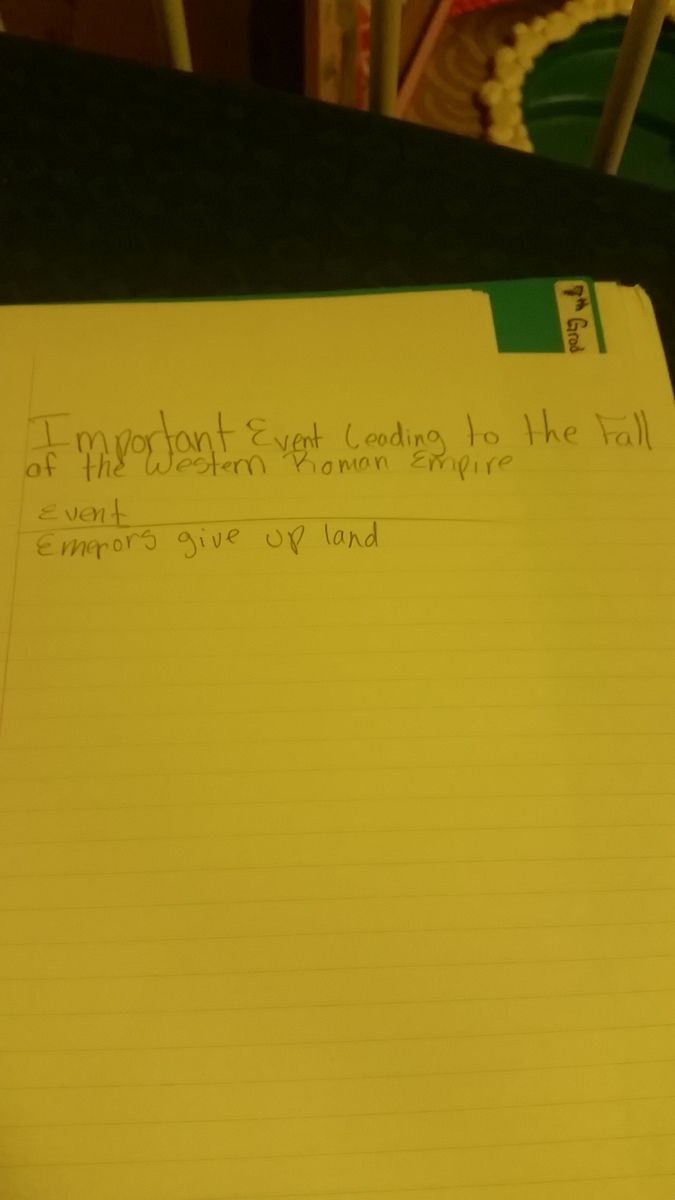 7th Grad
Important Event Leading to the Fall
of the Western Roman Empire
Event
Emerors give up land